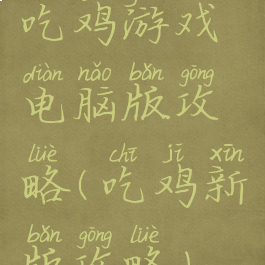 吃鸡游戏
diàn nǎo bǎn gōng
电脑版攻
lüè chī jī xīn
略(吃鸡新
bǎn gōng lüè
版攻略)